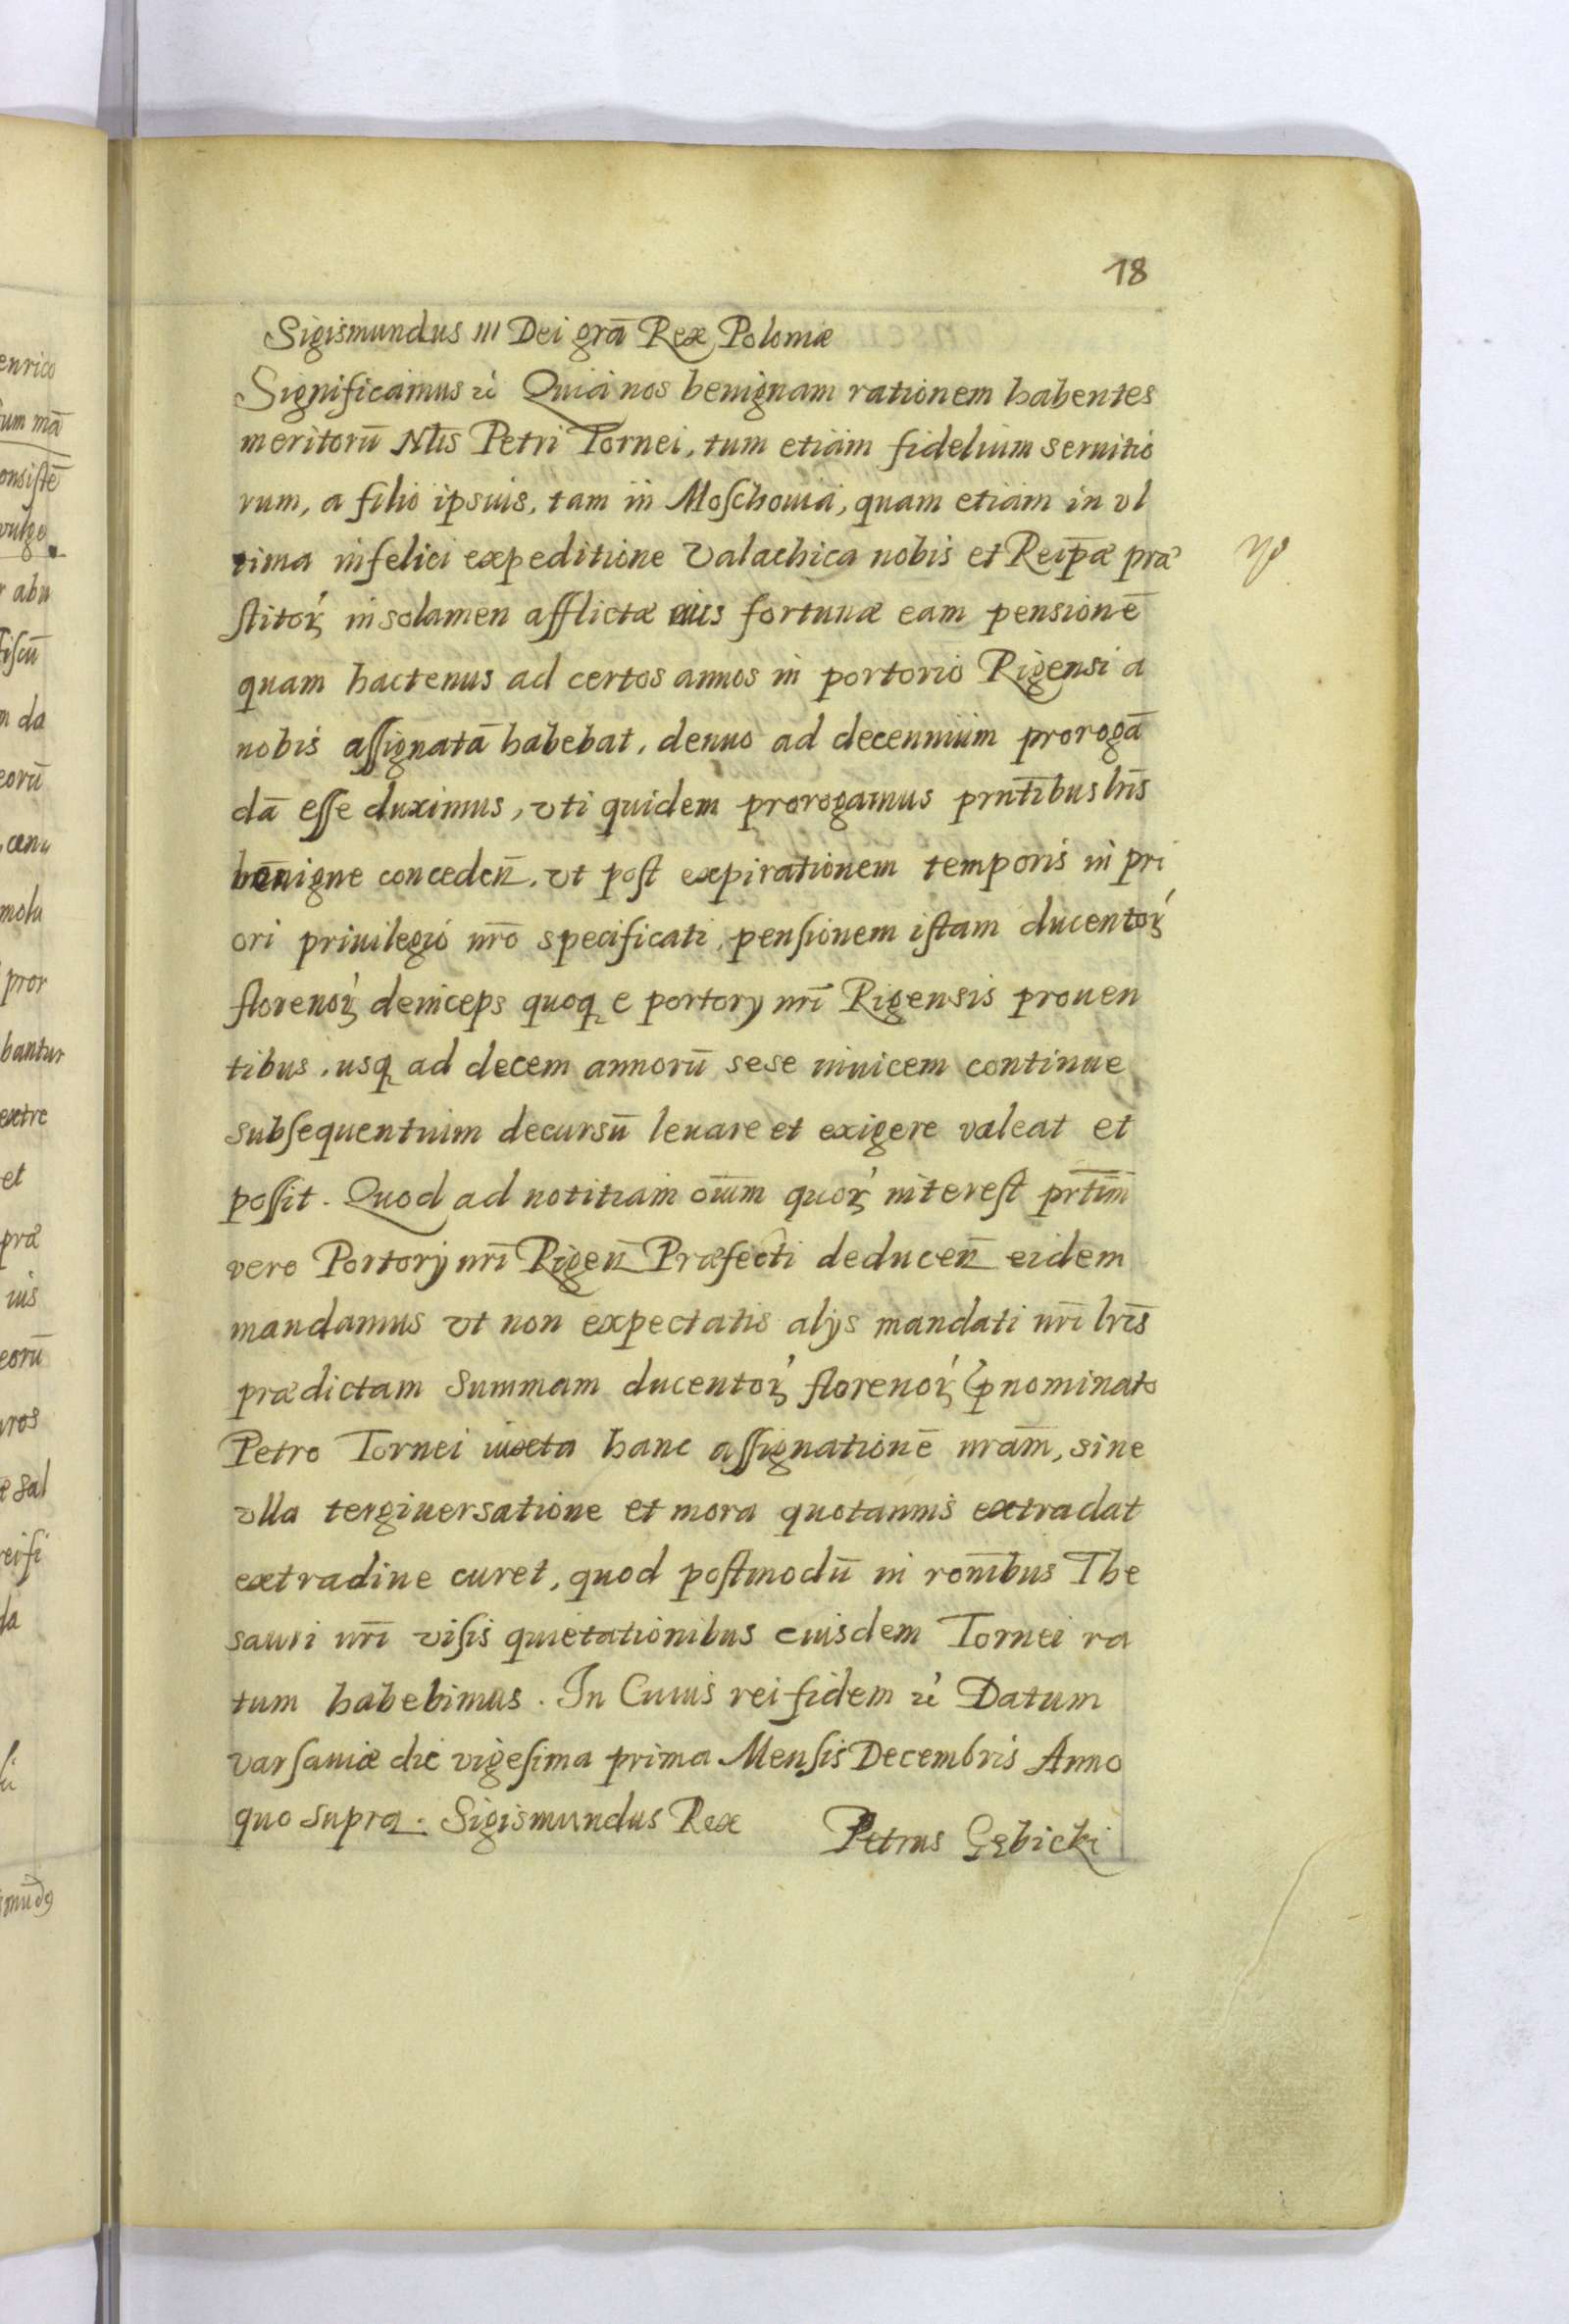 18
Sigismundus III Dei grā Rex Poloniæ
Significamus &c Quia nos benignam rationem habentes
meritorū Nlis Petri Tornei, tum etiam fidelium seruitio
rum, a filio ipsius, tam in Moschouia, quam etiam in vl
tima infelici expeditione Valachica nobis et Reipæ præ
stitoꝝ in solamen afflictæ eius fortunæ eam pensionē
quam hactenus ad certos annos in portorio Rigensi a
nobis assignatā habebat, denuo ad decennium prorogā
dā esse duximus, vti quidem prorogamus pnñtibus lrīs
benigne conceden̄. vt post expirationem temporis in pri
ori priuilegio nr̄o specificati, pensionem istam ducentoꝝ
florenoꝝ deinceps quoqꝫ e portorij nr̄i Rigensis prouen
tibus, usqꝫ ad decem annorū sese inuicem continue
subsequentium decursū leuare et exigere valeat et
possit. Quod ad notitiam oīum quoꝝ interest prt̄im
vero Portorij nr̄i Rigen̄ Præfecti deducen̄ eidem
mandamus vt non expectatis alijs mandati nr̄i lrīs
prædictam summam ducentoꝝ florenoꝝ p̄nominato
Petro Tornei iuxta hanc assignationē nr̄am, sine
vlla tergiuersatione et mora quotannis extradat
extradiue curet, quod postmodū in ron̄ibus The
sauri nr̄i visis quietationibus eiusdem Tornei ra
tum habebimus. In Cuius rei fidem &c Datum
varsauiæ die vigesima prima Mensis Decembris Anno
quo supra. Sigismundus Rex Petrus Gębicki